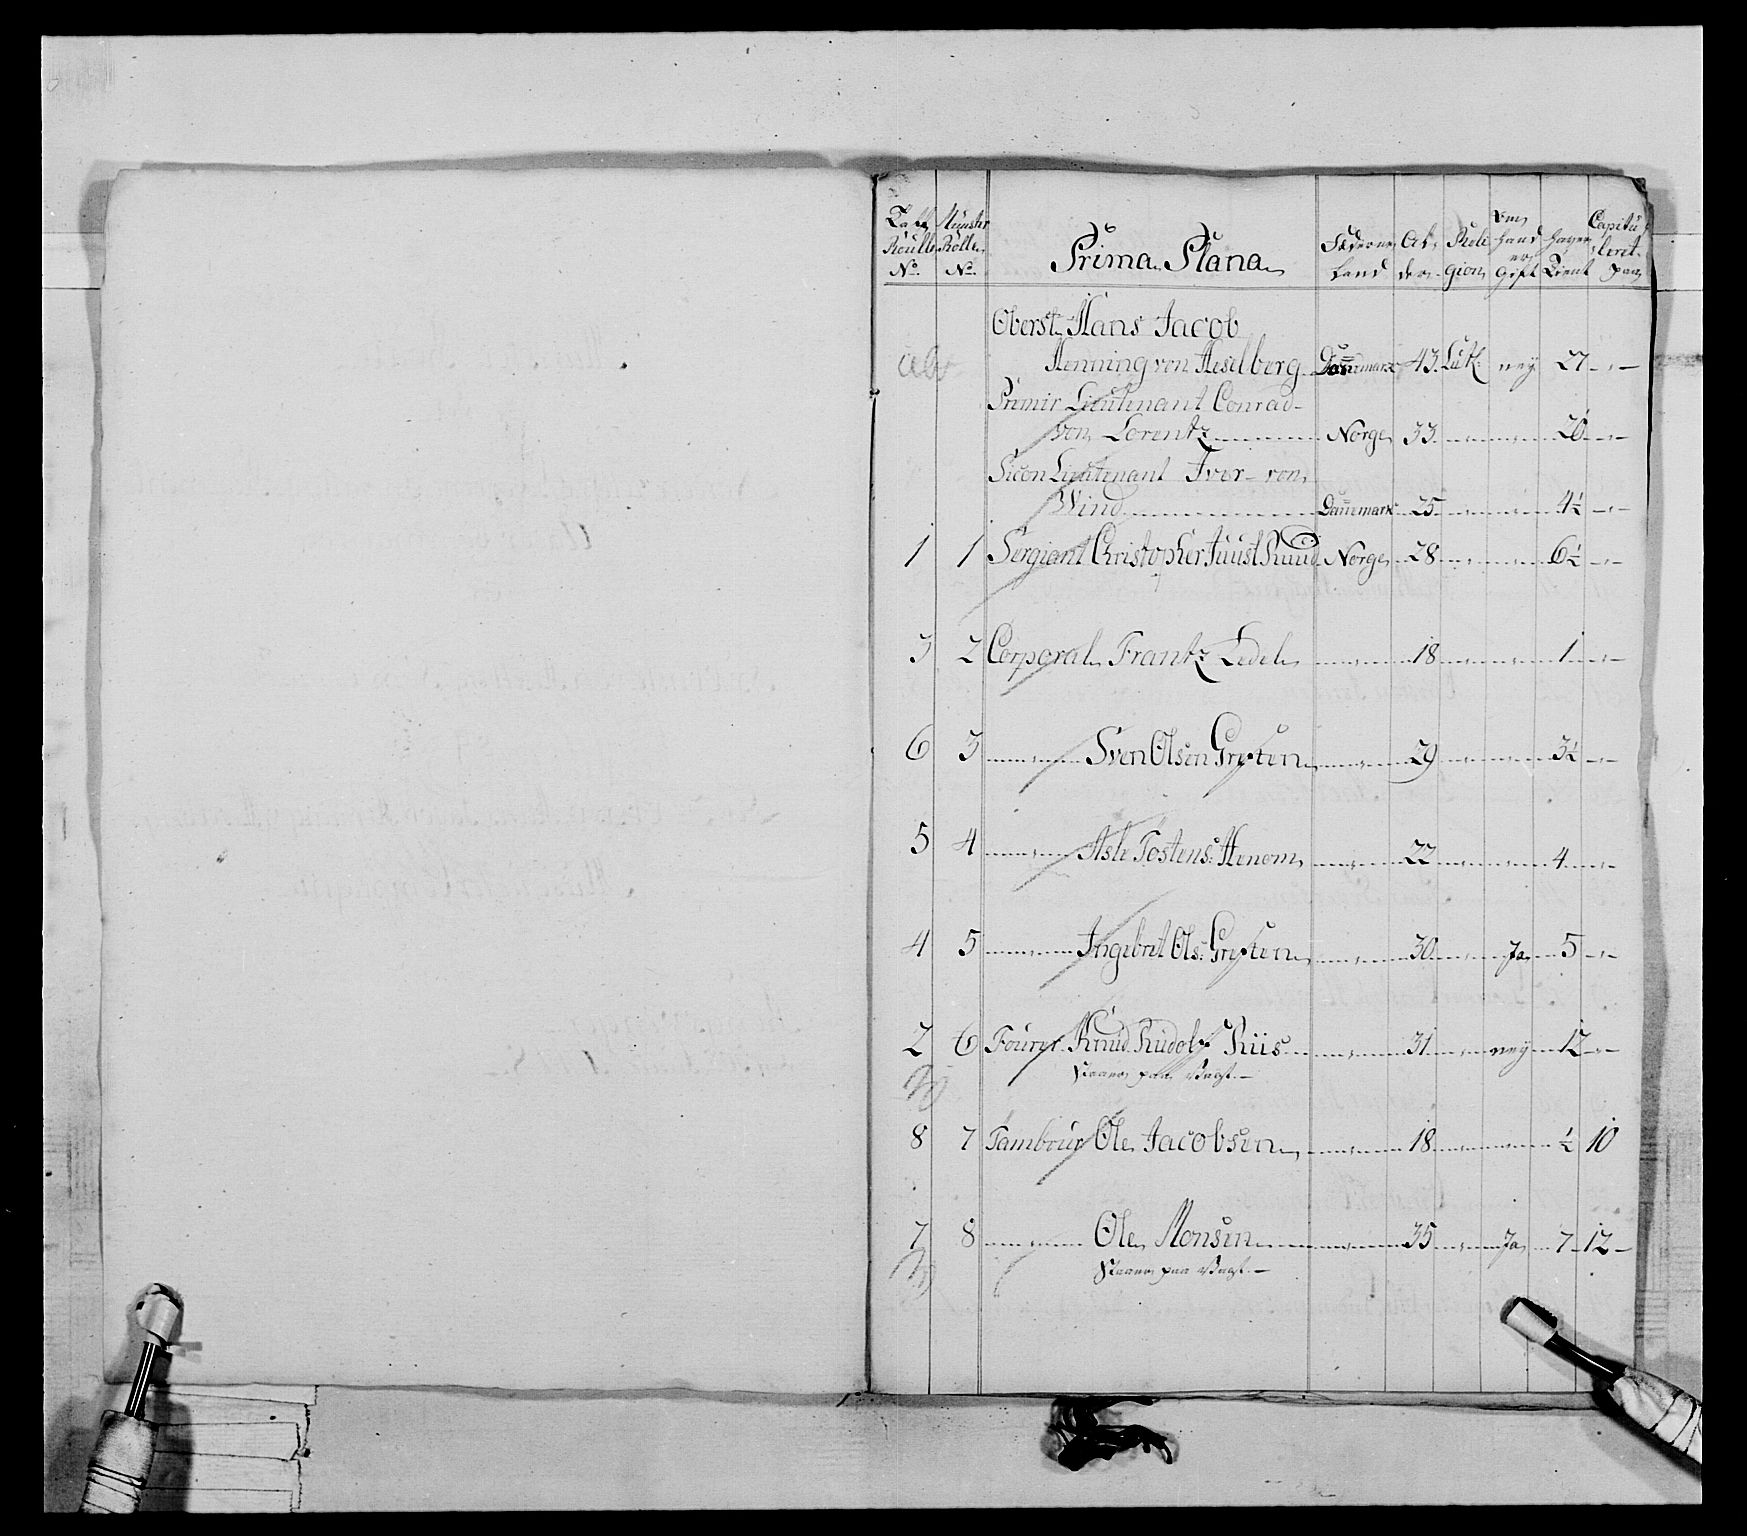 Rulle No. Mönster Rolle No. Prima Plana Fæderne Land Al- der Reli- gion Om hand er Gift haver Tient Capitu- leret paa
Oberst Hans Jacob
abs Henning von Heselberg Dannemark 43 Luth: ney 27
Premir Lieutenant Conrad
von Lorentz Norge 33 26
Sicon Lieutenant Iver von
Wind Dannemark 25 4½
1 1 Sergiant Christopher Juust Ruud Norge 28 6½
3 2 Corporal Frantz Ledel 18 1
6 3 Sven Olsen Grefsten 29 3½
5 4 Asle Tostens: Henom 22 4
4 5 Ingebret Ols: Grefsten 30 Ja 5
2 6 Fourer Knud Rudolf Riis 31 ney 12
Staaer paa Vagt
8 7 Tambour Ole Jacobsen 18 ½ 10
7 8 Ole Monsen 35 Ja 7 12
Staaer paa Vagt